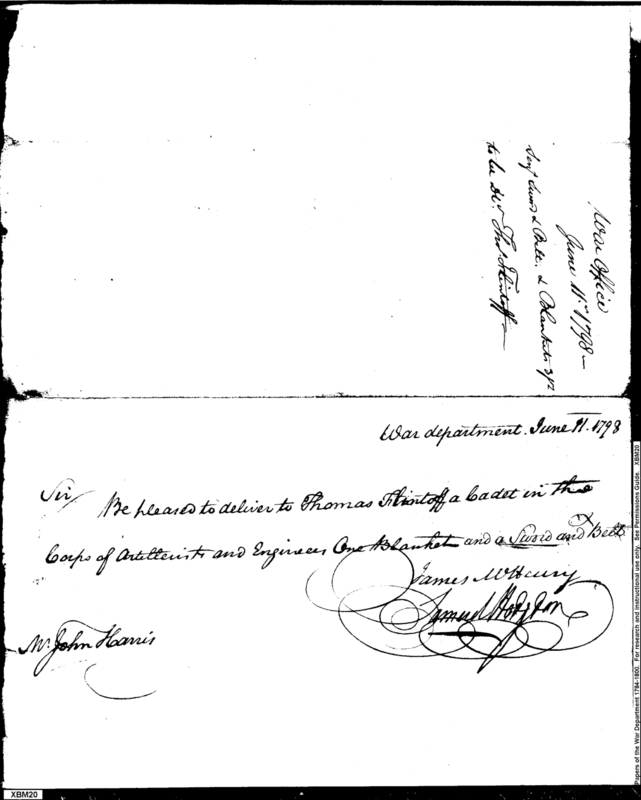 War Office
June 11th 1798
Serjt Sword & Belt. & Blankets &c
to be Dd. Thos Flintoff
War department. June 11. 1798
Sir/ Be pleased to deliver to Thomas Flintoff a Cadet in the
Corps of Artillerists and Engineers One Blanket and a Sword and Belt
James McHenry
Samuel Hodgdon
Mr. John Harris
Papers of the War Department 1784-1800. For research and instructional use only. See Permissions Guide. XBM20
XBM20